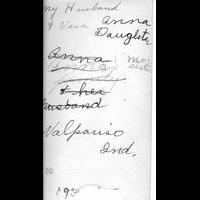 my Husband
& Vera Anna
Daughter
Anna
mo
sister
& her
Husband
Valpariso
Ind,
193